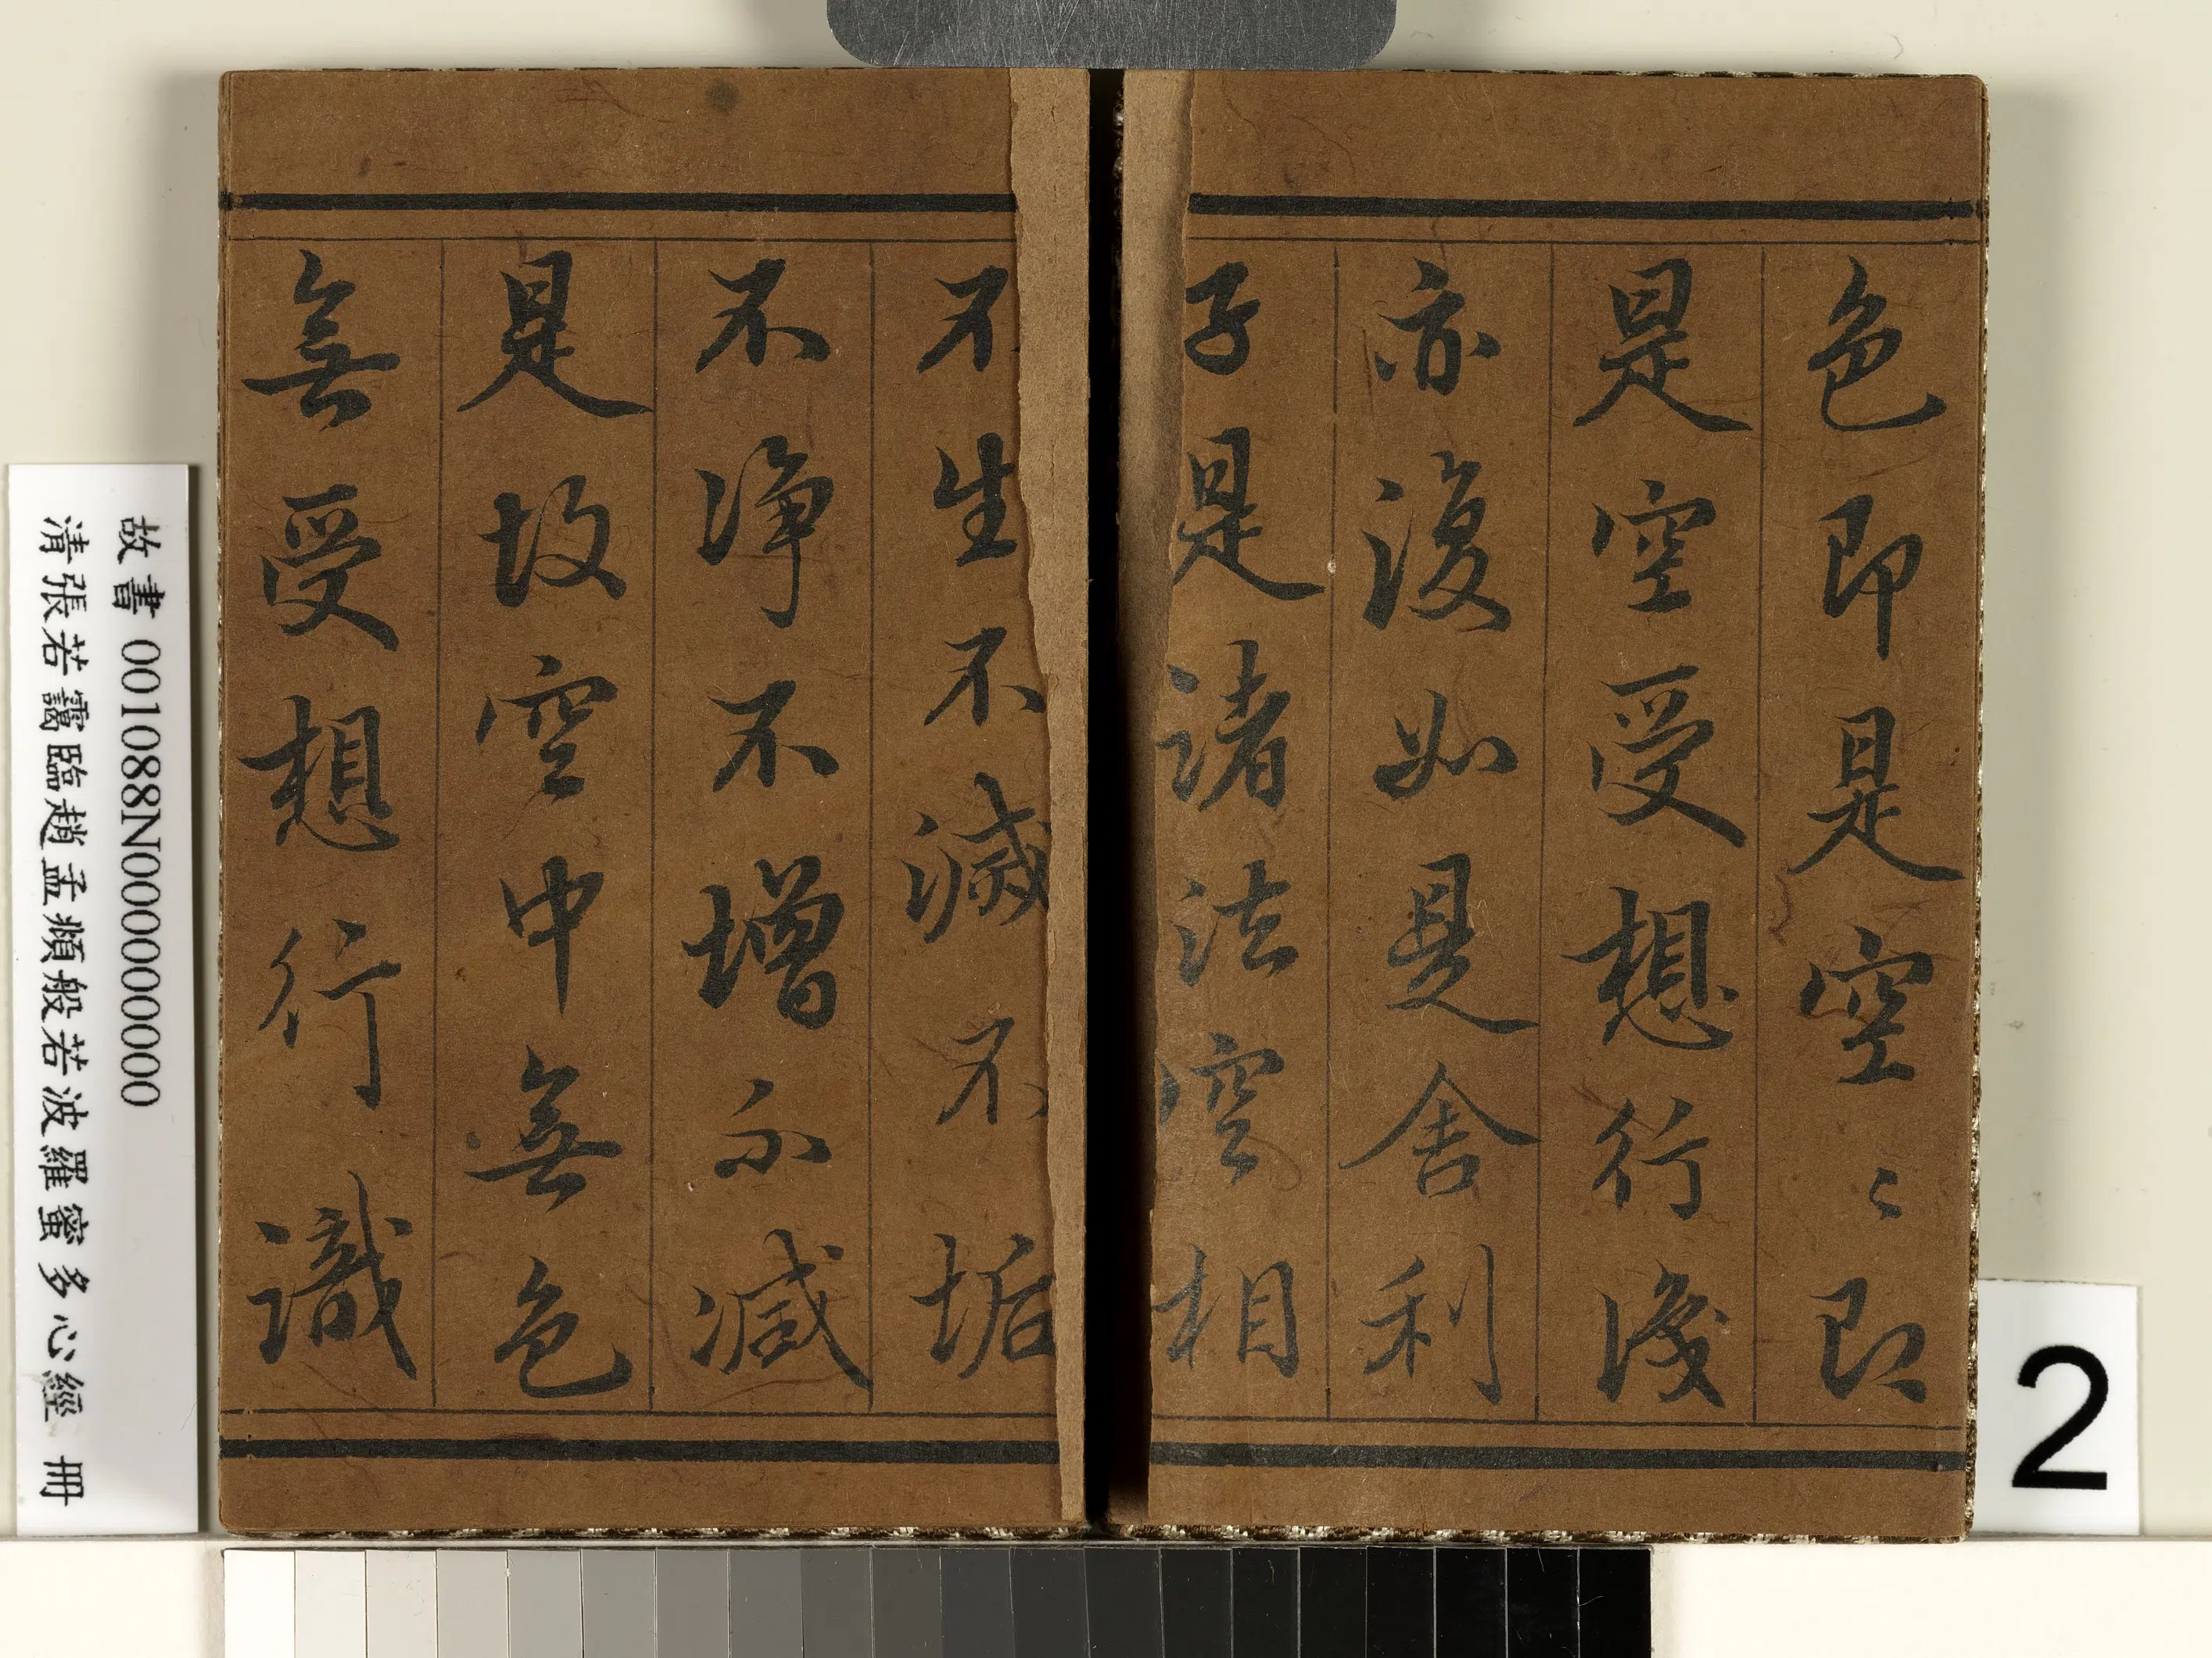 色即是空〻即
是空受想行識
亦復如是舍利
子是諸法空相
不生不滅不垢
不淨不增不減
是故空中無色
無受想行識
故書 001088N000000000
清張若靄臨趙孟頫般若波羅蜜多心經 冊
2